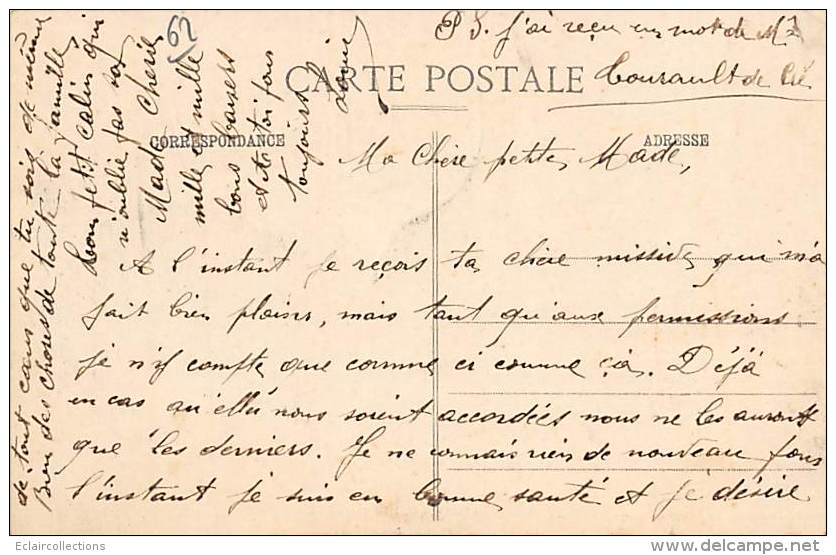 P S. J'ai reçu un mot de Mr
Courault de
62
CARTE POSTALE
CORRESPONDANCE
ADRESSE
Ma Chère petite Made,
A l'instant je reçois ta chère missive qui m'a
fait bien plaisir, mais tant qu'aux permissions
je n'y compte que comme ci comme ça. Déjà
en cas qu'elle nous soient accordées nous ne les aurons
que les derniers. Je ne connais rien de nouveau pour
l'instant je suis en bonne santé et je désire
de tout cœur que tu sois de même
Bien des choses de toute la famille
Bon petit calin qui
n'oublie pas sa
Made Chérie
mille et mille
bons baisers
et à toi pour
toujours
Eclaircollections
delcampe.net